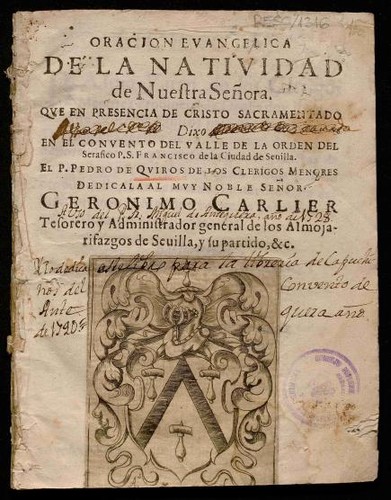 RESG/1316
ORACION EVANGELICA
DE LA NATIVIDAD
de Nuestra Señora.
QVE EN PRESENCIA DE CRISTO SACRAMENTADO
Dixo
EN EL CONVENTO DEL VALLE DE LA ORDEN DEL
Serafico P. S. FRANCISCO de la Ciudad de Sevilla.
EL P. PEDRO DE QVIROS DE LOS CLERIGOS MENORES
DEDICALA AL MVY NOBLE SEÑOR
GERONIMO CARLIER
A Uso del P. Fr. Miguel de Antequera, año de 1728.
Tesorero y Administrador general de los Almoja-
rifazgos de Sevilla, y su partido, &c.
para la libreria de Capuchi
nos del Convento de
Ante quera año
de 1720